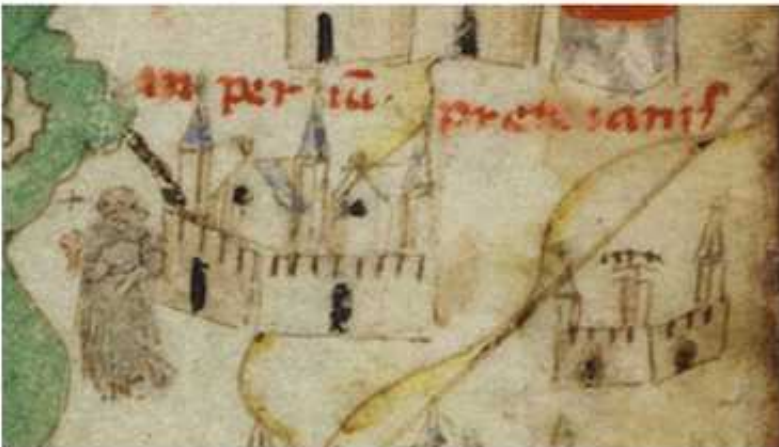 in per iū · prete ianis